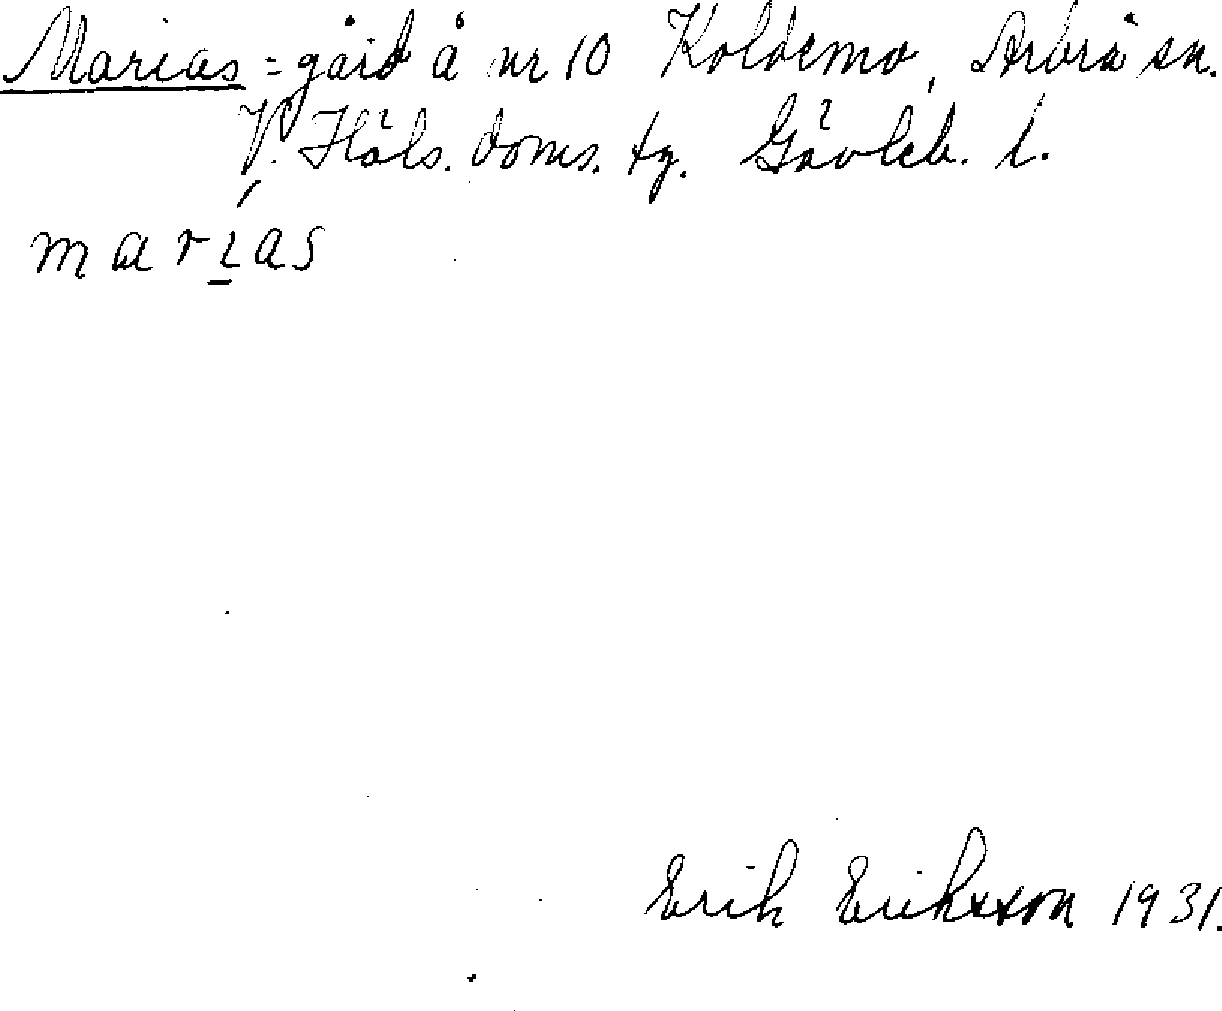 Marias = gård å nr 10 Koldemo, Arbrå sn.
V. Häls. doms. tg. Gävleb. l.
marías
Erik Eriksson 1931.